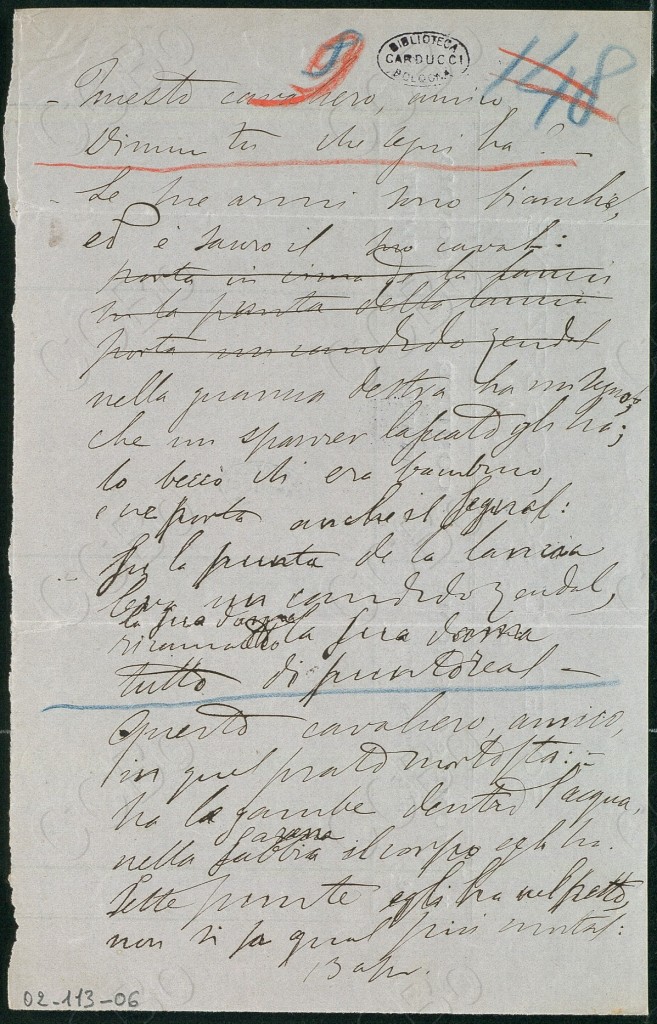 9
BIBLIOTECA
CARDUCCI
BOLOGNA
148
- Questo cavaliero, amico,
dimmi tu che segni ha? -
- Le sue armi sono bianche,
ed è sauro il suo caval:
porta in cima de la lancia
su la punta della lancia
porta un candido zendal
nella guancia destra ha un segno,
che un sparvier lasciato gli ha;
lo beccò ch'era bambino,
e ne porta anche il segnal:
su la punta de la lancia
leva un candido zendal,
la sua donna
ricamollo la sua donna
tutto di punto real -
- Questo cavaliero, amico,
in quel prato morto sta: -
ha le gambe dentro l'acqua,
rena
nella sabbia il corpo egli ha.
Sette punte egli ha nel petto,
non si sa qual più mortal:
13 apr.
02-113-06